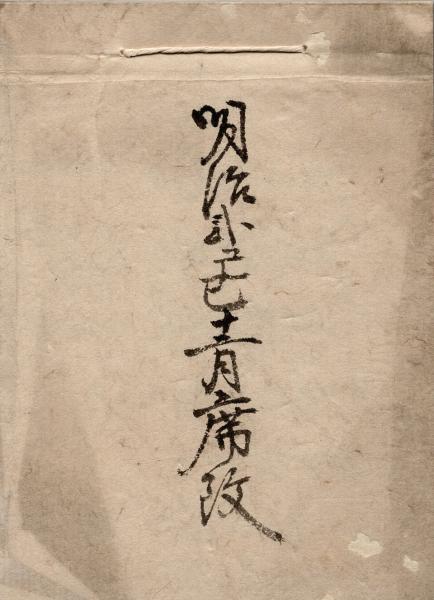 明治弐己巳十二月席改